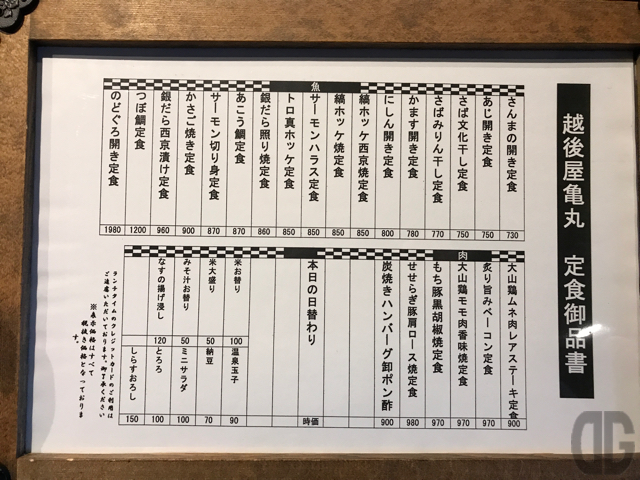 越後屋亀丸 定食御品書
魚
さんまの開き定食 730
あじ開き定食 750
さば文化干し定食 750
さばみりん干し定食 770
かます開き定食 780
にしん開き定食 800
縞ホッケ西京焼定食 850
縞ホッケ焼定食 850
サーモンハラス定食 850
トロ真ホッケ定食 850
銀だら照り焼定食 860
あこう鯛定食 870
サーモン切り身定食 870
かさご焼き定食 900
銀だら西京漬け定食 960
つぼ鯛定食 1200
のどぐろ開き定食 1980
肉
大山鶏ムネ肉レアステーキ定食 900
炙り旨みベーコン定食 970
大山鶏モモ肉香味焼定食 970
もち豚黒胡椒焼定食 970
せせらぎ豚肩ロース焼定食 980
炭焼きハンバーグ卸ポン酢 900
本日の日替わり 時価
米お替り 100
米大盛り 50
みそ汁お替り 50
なすの揚げ浸し 120
温泉玉子 90
納豆 70
ミニサラダ 100
とろろ 100
しらすおろし 150
ランチタイムのクレジットカードのご利用は
ご遠慮いただいております。御了承ください
※表示価格はすべて
税抜き価格となっておりま
す。
DG